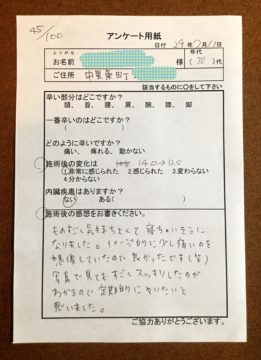 45/100
アンケート用紙
日付 29年 月11日
ふりがな
お名前 様
年代
(30)代
ご住所 中葛東町
該当するものに○をして下さい
辛い部分はどこですか?
頭、首、腰、肩、腕、膝、脚
一番辛いのはどこですか?
( )
どのように辛いですか?
痛い、痺れる、動かない
施術後の変化は 14.0→13.5
①.非常に感じられた 2.感じられた 3.変わらない
4.分からない
内臓疾患はありますか?
ない ある( )
施術後の感想をお書きください。
ものすごく気持ちよくて寝ちゃいそうに
なりました。イメージ的に少し痛いのを
想像していたので良かったです(笑)
写真で見てもすごくスッキリしたのが
わかるので定期的にやりたいと
思いました。
ご協力ありがとうございます。